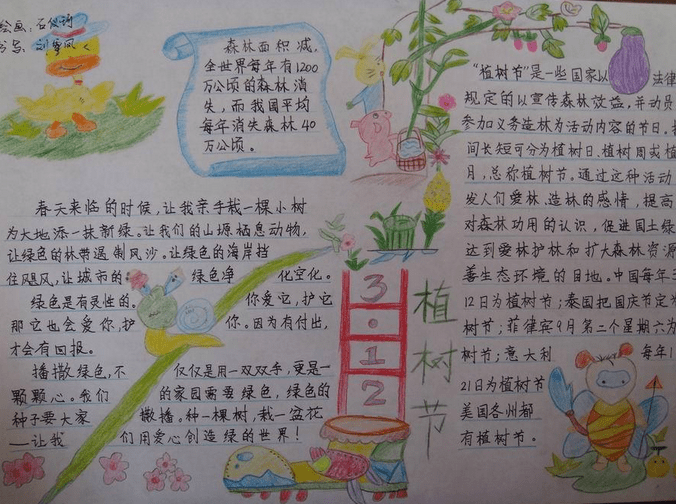 绘画：石俊琦
书写：刘雪凤
森林面积减，
全世界每年有1200
万公顷的森林消
失，而我国平均
每年消失森林40
万公顷。
春天来临的时候，让我亲手栽一棵小树
为大地添一抹新绿。让我们的山塬栖息动物，
让绿色的林带遏制风沙。让绿色的海岸挡
住飓风，让城市的绿色净化空化。
绿色是有灵性的。你爱它，护它
那它也会爱你，护你。因为有付出，
才会有回报。
播撒绿色，不仅仅是用一双双手，更是一
颗颗心。我们的家园需要绿色，绿色的
种子要大家撒播。种一棵树，栽一盆花
——让我们用爱心创造绿的世界！
3·12
植树节
“植树节”是一些国家以法律
规定的以宣传森林效益，并动员
参加义务造林为活动内容的节日。
间长短可分为植树日、植树周或植
月，总称植树节。通过这种活动
发人们爱林、造林的感情，提高
对森林功用的认识，促进国土绿
达到爱林护林和扩大森林资源
善生态环境的目地。中国每年3
12日为植树节；泰国把国庆节定为
树节；菲律宾9月第二个星期六为
树节；意大利每年1
21日为植树节
美国各州都
有植树节。